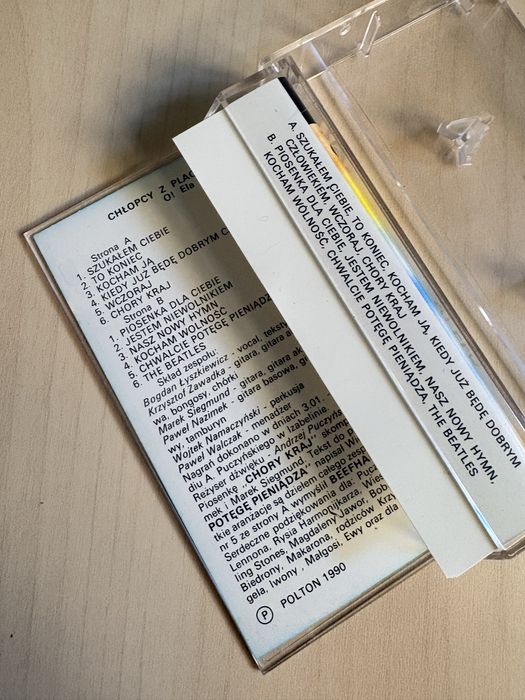 CHŁOPCY Z PLAC
O! Ela
Strona A
1. SZUKAŁEM CIEBIE
2. TO KONIEC
3. KOCHAM JĄ
4. KIEDY JUŻ BĘDĘ DOBRYM C
5. WCZORAJ
6. CHORY KRAJ
Strona B
1. PIOSENKA DLA CIEBIE
2. JESTEM NIEWOLNIKIEM
3. NASZ NOWY HYMN
4. KOCHAM WOLNOŚĆ
5. CHWALCIE POTĘGĘ PIENIĄDZ
6. THE BEATLES
Skład zespołu:
Bogdan Łyszkiewicz - vocal, teksty
Krzysztof Zawadka - gitara, gitara a
wa, bongosy, chórki
Marek Siegmund - gitara, gitara ak
Paweł Nazimek - gitara basowa, g
wy, tamburyn
Wojtek Namaczyński - perkusja
Paweł Walczak - menadżer
Nagrań dokonano w dniach 3.01. -
diu A. Puczyńskiego w Izabelinie.
Reżyser dźwięku - Andrzej Puczyńs
Piosenkę „CHORY KRAJ" skomp
mek i Marek Siegmund, Tekst do
POTĘGĘ PIENIĄDZA" napisał Wi
tkie aranżacje są dziełem całego zesp
nr 5 ze strony A wymyślił BEEFHA
Serdeczne podziękowania dla: Pucz
Lennona, Rysia Harmonijkarza, Wies
ling Stones, Magdaleny Jawor, Bob
Biedrony, Makarona, rodziców Krzy
gela, Iwony, Małgosi, Ewy oraz dla
P POLTON 1990
A. SZUKAŁEM CIEBIE, TO KONIEC, KOCHAM JĄ, KIEDY JUŻ BĘDĘ DOBRYM
CZŁOWIEKIEM, WCZORAJ, CHORY KRAJ
B. PIOSENKA DLA CIEBIE, JESTEM NIEWOLNIKIEM, NASZ NOWY HYMN,
KOCHAM WOLNOŚĆ, CHWALCIE POTĘGĘ PIENIĄDZA, THE BEATLES